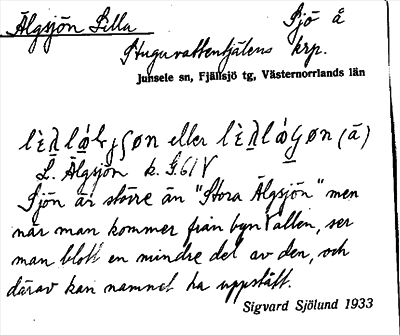 Älgsjön Lilla Sjö å
Stuguvattentjälens krp.
Junsele sn, Fjällsjö tg, Västernorrlands län
eller (å)
L. Älgsjön k. G.61 V
Sjön är större än "Stora Älgsjön" men
när man kommer från byn Vallen, ser
man blott en mindre del av den, och
därav kan namnet ha uppstått.
Sigvard Sjölund 1933